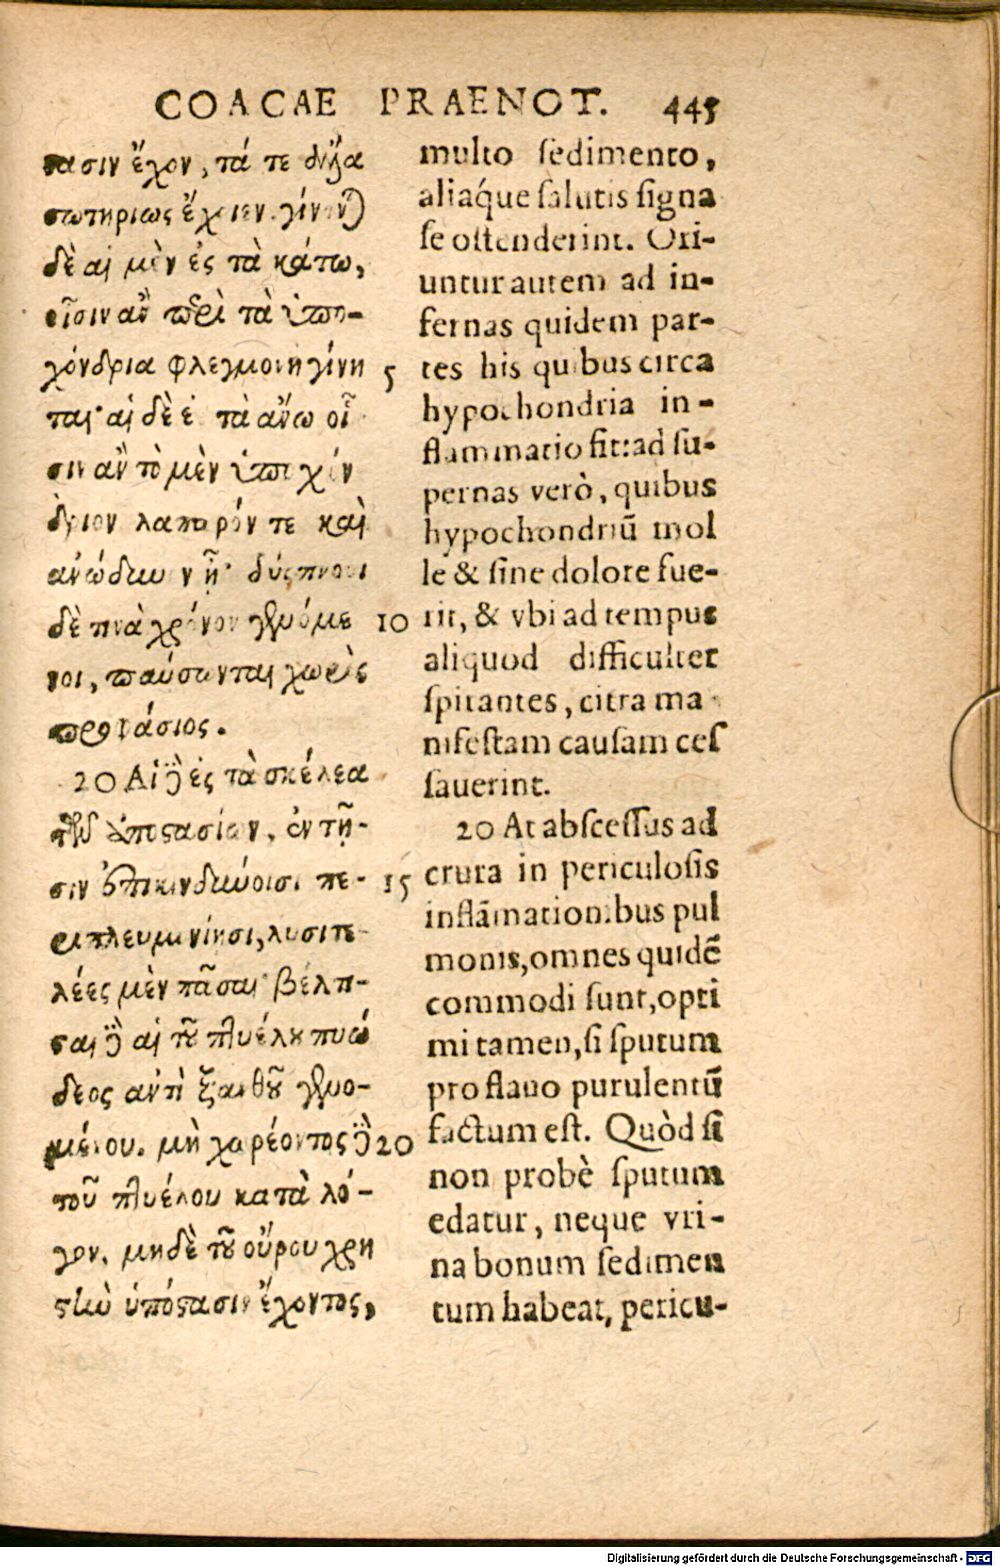 COACAE PRAENOT. 445
πασιν ἔχον, τά τε ἄλλα
σωτηρίως ἔχοιεν. γίνονται
δὲ αἱ μὲν ἐς τὰ κάτω,
οἷσιν ἂν περὶ τὰ ὑπο-
χόνδρια φλεγμονὴ γίνη
ται· αἱ δὲ ἐς τὰ ἄνω οἷ
σιν ἂν τὸ μὲν ὑποχόν
δριον λαπαρόν τε καὶ
ἀνώδυνον ᾖ· δύσπνοοι
δὲ τινὰ χρόνον γενόμε
νοι, παύσωνται χωρὶς
προφάσιος.
20 Αἱ δὲ ἐς τὰ σκέλεα
τῶν ἀποστασίων, ἐν τῇ-
σιν ἐπικινδύνοισι πε-
ριπλευμονίησι, λυσιτε-
λέες μὲν πᾶσαι· βέλτι-
σται δὲ αἱ τοῦ πτυέλου πυώ
δεος ἀντὶ ξανθοῦ γενο-
μένου. μὴ χωρέοντος δὲ
τοῦ πτυέλου κατὰ λό-
γον, μηδὲ τοῦ οὔρου χρη
στὴν ὑπόστασιν ἔχοντος,
5
10
15
20
multo sedimento,
aliáque salutis signa
se ostenderint. Ori-
untur autem ad in-
fernas quidem par-
tes his quibus circa
hypochondria in-
flammatio fit: ad su-
pernas verò, quibus
hypochondriũ mol
le & sine dolore fue-
rit, & vbi ad tempus
aliquod difficulter
spirantes, citra ma
nifestam causam ces
sauerint.
20 At abscessus ad
crura in periculosis
inflãmationibus pul
monis, omnes quidẽ
commodi sunt, opti
mi tamen, si sputum
pro flauo purulentũ
factum est. Quòd si
non probè sputum
edatur, neque vri-
na bonum sedimen
tum habeat, pericu-
Digitalisierung gefördert durch die Deutsche Forschungsgemeinschaft - DFG